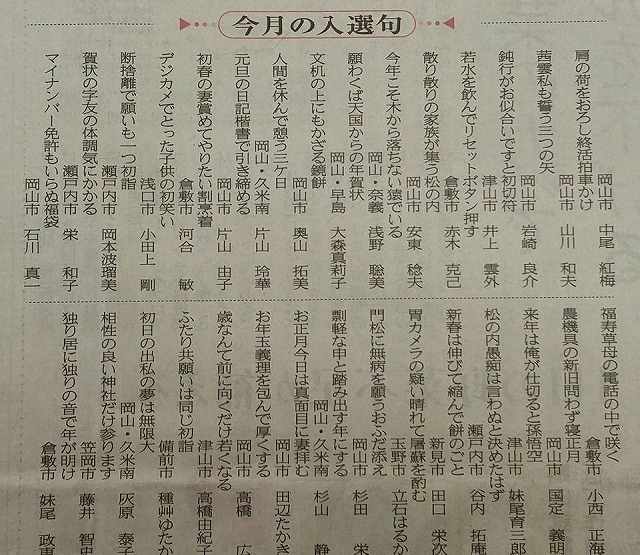 今月の入選句
肩の荷をおろし終活拍車かけ
岡山市 中尾 紅梅
茜雲私も誓う三つの矢
岡山市 山川 和夫
鈍行がお似合いですと初切符
岡山市 岩崎 良介
若水を飲んでリセットボタン押す
津山市 井上 雲外
散り散りの家族が集う松の内
倉敷市 赤木 克己
今年こそ木から落ちない猿でいる
岡山市 安東 稔夫
願わくば天国からの年賀状
岡山・奈義 浅野 聡美
文机の上にもかざる鏡餅
岡山・早島 大森真莉子
人間を休んで憩う三ケ日
岡山市 奥山 拓美
元旦の日記楷書で引き締める
岡山・久米南 片山 玲華
初春の妻賞めてやりたい割烹着
岡山市 片山 由子
デジカメでとった子供の初笑い
倉敷市 河合 敏
断捨離で願いも一つ初詣
浅口市 小田上 剛
賀状の字友の体調気にかかる
瀬戸内市 岡本波瑠美
マイナンバー免許もいらぬ福袋
瀬戸内市 栄 和子
岡山市 石川 真一
福寿草母の電話の中で咲く
倉敷市 小西 正海
農機具の新旧問わず寝正月
岡山市 国定 義明
来年は俺が仕切ると孫悟空
津山市 妹尾育三郎
松の内愚痴は言わぬと決めたはず
瀬戸内市 谷内 拓庵
新春は伸びて縮んで餅のごと
新見市 田口 栄次
胃カメラの疑い晴れて屠蘇を酌む
玉野市 立石はるか
門松に無病を願うおふだ添え
岡山市 杉田 栄
剽軽な申と踏み出す年にする
岡山・久米南 杉山 静
お正月今日は真面目に妻拝む
岡山市 田辺たかき
お年玉義理を包んで厚くする
岡山市 高橋 広
歳なんて前に向くだけ若くなる
津山市 高橋由紀子
ふたり共願いは同じ初詣
備前市 種艸ゆたか
初日の出私の夢は無限大
岡山・久米南 灰原 泰子
相性の良い神社だけ参ります
笠岡市 藤井 智史
独り居に独りの音で年が明け
倉敷市 妹尾 政恵